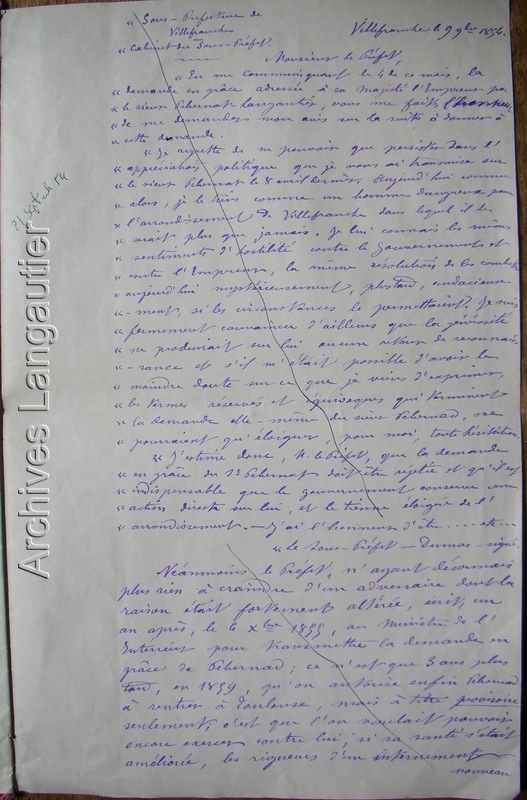 « Sous-Préfecture de
Villefranche
« Cabinet du Sous-Préfet.
Villefranche le 9 9bre 1854.
Monsieur le Préfet,
« En me communiquant le 4 de ce mois, la
« demande en grâce adressée à sa majesté l'Empereur par
« le sieur Pébernad Langautier, vous me faites l'honneur
« de me demander mon avis sur la suite à donner à
« cette demande.
« Je regrette de ne pouvoir que persister dans l'
« appréciation politique que je vous ai transmise sur
« le sieur Pébernad le 8 avril dernier. Aujourd'hui comme
« alors, je le tiens comme un homme dangereux pour
« l'arrondissement de Villefranche dans lequel il le
« serait plus que jamais. Je lui connais les mêmes
« sentiments d'hostilité contre le Gouvernement et
« contre l'Empereur, la même résolution de les combattre
« aujourd'hui mystérieusement, plus tard, audacieuse-
« ment, si les circonstances le permettaient. Je suis
« fermement convaincu d'ailleurs que la générosité
« ne produirait sur lui aucun retour de reconnais-
« -sance et s'il m'était possible d'avoir le
« moindre doute sur ce que je viens d'exprimer,
« les termes réservés et équivoques qui terminent
« la demande elle-même du sieur Pébernad, ne
« pourraient qu'éloigner, pour moi, toute hésitation.
« J'estime donc, M. le Préfet, que la demande
« en grâce du Sr Pébernad doit être rejetée et qu'il est
« indispensable que le gouvernement conserve une
« action directe sur lui, et le tienne éloigné de l'
« arrondissement. — J'ai l'honneur d'être ..... etc ...
« Le Sous-Préfet — Dumas — signé
Néanmoins le Préfet, n'ayant désormais
plus rien à craindre d'un adversaire dont la
raison était fortement altérée, écrit, un
an après, le 6 Xbre 1855, au Ministre de l'
Intérieur pour transmettre la demande en
grâce de Pébernad ; ce n'est que 3 ans plus
tard, en 1859 qu'on autorise enfin Pébernad
à rentrer à Toulouse, mais à titre provisoire
seulement ; c'est que l'on voulait pouvoir
encore exercer contre lui, si sa santé s'était
améliorée, les rigueurs d'un internement
nouveau
Archives Langautier